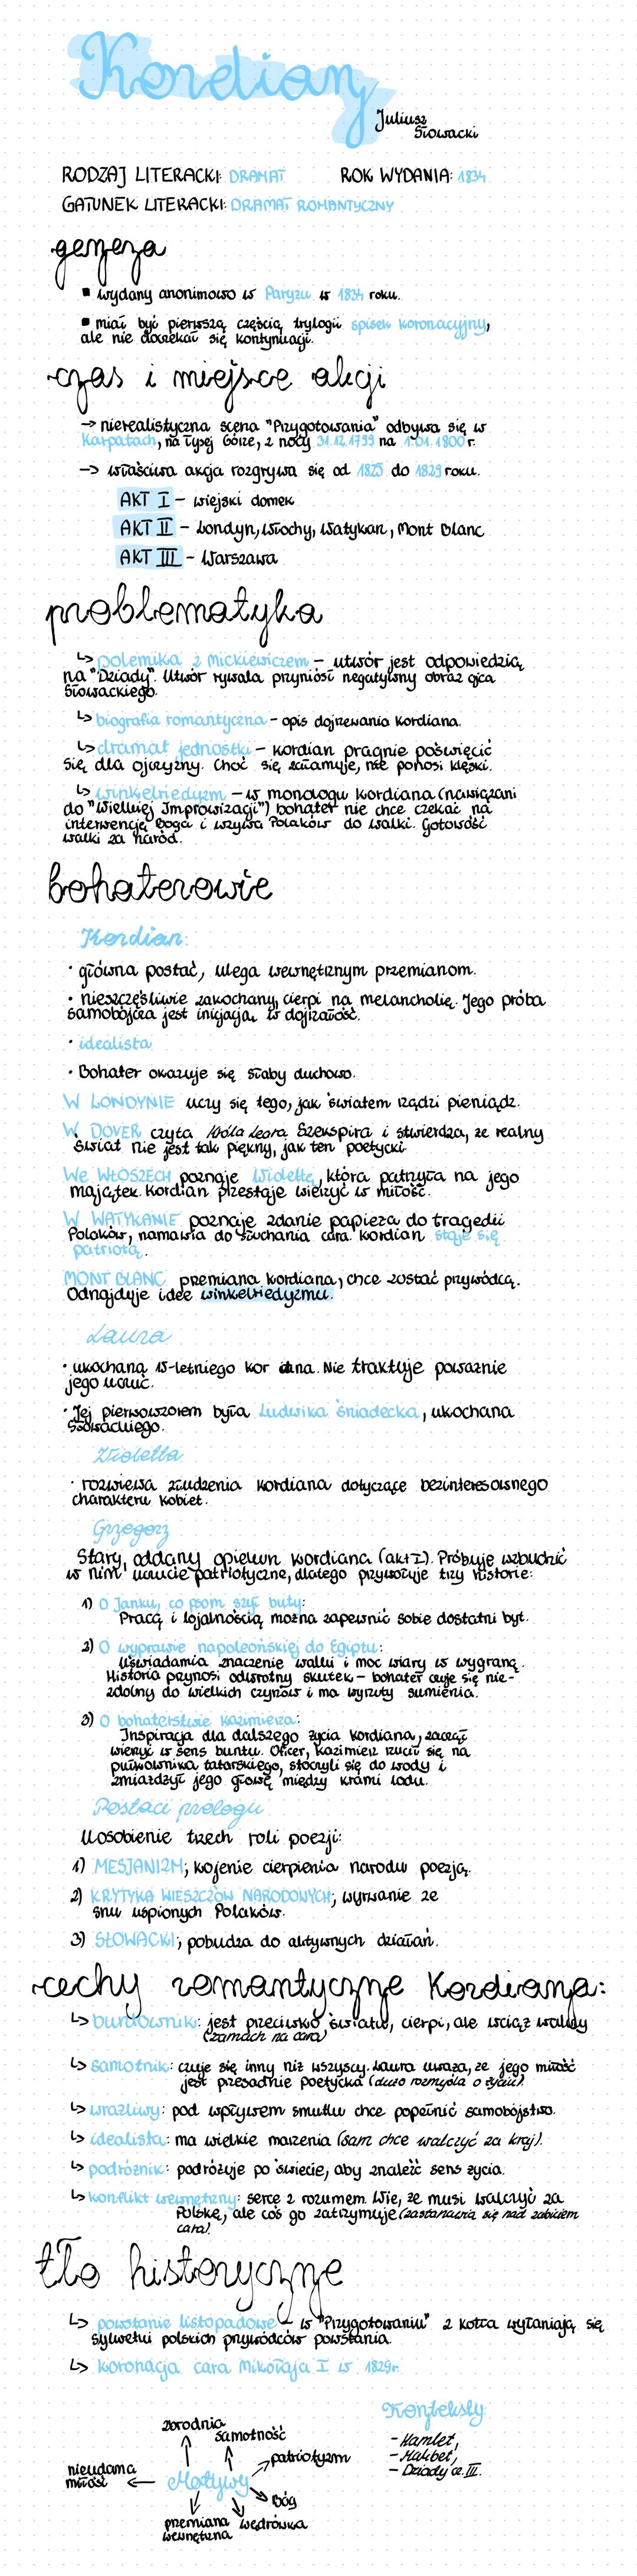 Kordian
Juliusz
Słowacki
RODZAJ LITERACKI: DRAMAT ROK WYDANIA: 1834
GATUNEK LITERACKI: DRAMAT ROMANTYCZNY
geneza
▪ wydany anonimowo w Paryżu w 1834 roku.
▪ miał być pierwszą częścią trylogii spisek koronacyjny,
ale nie doczekał się kontynuacji.
czas i miejsce akcji
→ nierealistyczna scena "Przygotowania" odbywa się w
Karpatach, na Łysej Górze, z nocy 31.12.1799 na 1.01.1800 r.
→ właściwa akcja rozgrywa się od 1825 do 1829 roku.
AKT I – wiejski domek
AKT II – Londyn, Włochy, Watykan, Mont Blanc
AKT III – Warszawa
problematyka
↳ polemika z Mickiewiczem – utwór jest odpowiedzią
na "Dziady". Utwór rywala przyniósł negatywny obraz ojca
Słowackiego.
↳ biografia romantyczna – opis dojrzewania Kordiana.
↳ dramat jednostki – Kordian pragnie poświęcić
się dla ojczyzny. Choć się załamuje, nie ponosi klęski.
↳ winkelriedyzm – w monologu Kordiana (nawiązani
do "Wielkiej Improwizacji") bohater nie chce czekać na
interwencję Boga i wzywa Polaków do walki. Gotowość
walki za naród.
bohaterowie
Kordian:
· główna postać, ulega wewnętrznym przemianom.
· nieszczęśliwie zakochany, cierpi na melancholię. Jego próba
samobójcza jest inicjacją w dojrzałość.
· idealista
· Bohater okazuje się słaby duchowo.
W LONDYNIE uczy się tego, jak światem rządzi pieniądz.
W DOVER czyta Króla Leara Szekspira i stwierdza, że realny
świat nie jest tak piękny, jak ten poetycki
We WŁOSZECH poznaje Wiolettę, która patrzyła na jego
majątek. Kordian przestaje wierzyć w miłość.
W WATYKANIE poznaje zdanie papieża do tragedii
Polaków, namawia do słuchania cara. Kordian staje się
patriotą.
MONT BLANC przemiana Kordiana, chce zostać przywódcą.
Odnajduje ideę winkelriedyzmu.
Laura
· ukochana 15-letniego Kordiana. Nie traktuje poważnie
jego uczuć.
· Jej pierwowzorem była Ludwika Śniadecka, ukochana
Słowackiego.
Wioletta
· rozwiewa złudzenia Kordiana dotyczące bezinteresownego
charakteru kobiet.
Grzegorz
Stary, oddany opiekun Kordiana (akt I). Próbuje wzbudzić
w nim uczucie patriotyczne, dlatego przywołuje trzy historie:
1) O Janku, co psom szył buty:
Pracą i lojalnością można zapewnić sobie dostatni byt.
2) O wyprawie napoleońskiej do Egiptu:
Uświadamia znaczenie walki i moc wiary w wygraną.
Historia przynosi odwrotny skutek – bohater czuje się nie-
zdolny do wielkich czynów i ma wyrzuty sumienia.
3) O bohaterstwie Kazimierza:
Inspiracja dla dalszego życia Kordiana, zaczął
wierzyć w sens buntu. Oficer, Kazimierz rzucił się na
pułkownika tatarskiego, stoczyli się do wody i
zmiażdżył jego głowę między krami lodu.
Postaci prologu
Uosobienie trzech roli poezji:
1) MESJANIZM; kojenie cierpienia narodu poezją.
2) KRYTYKA WIESZCZÓW NARODOWYCH; wyrwanie ze
snu uśpionych Polaków.
3) SŁOWACKI; pobudza do aktywnych działań.
cechy romantyczne Kordiana:
↳ buntownik: jest przeciwko światu, cierpi, ale wciąż walczy
(zamach na cara)
↳ samotnik: czuje się inny niż wszyscy. Laura uważa, że jego miłość
jest przesadnie poetycka (dużo rozmyśla o życiu).
↳ wrażliwy: pod wpływem smutku chce popełnić samobójstwo.
↳ idealista: ma wielkie marzenia (sam chce walczyć za kraj).
↳ podróżnik: podróżuje po świecie, aby znaleźć sens życia.
↳ konflikt wewnętrzny: serce z rozumem. Wie, że musi walczyć za
Polskę, ale coś go zatrzymuje (zastanawia się nad zabiciem
cara).
tło historyczne
↳ powstanie listopadowe – w "Przygotowaniu" z kotła wyłaniają się
sylwetki polskich przywódców powstania.
↳ koronacja cara Mikołaja I w 1829r.
Konteksty:
– Hamlet,
– Makbet,
– Dziady cz. III.
zbrodnia
samotność
patriotyzm
nieudana
miłość
Motywy
Bóg
przemiana
wewnętrzna
wędrówka